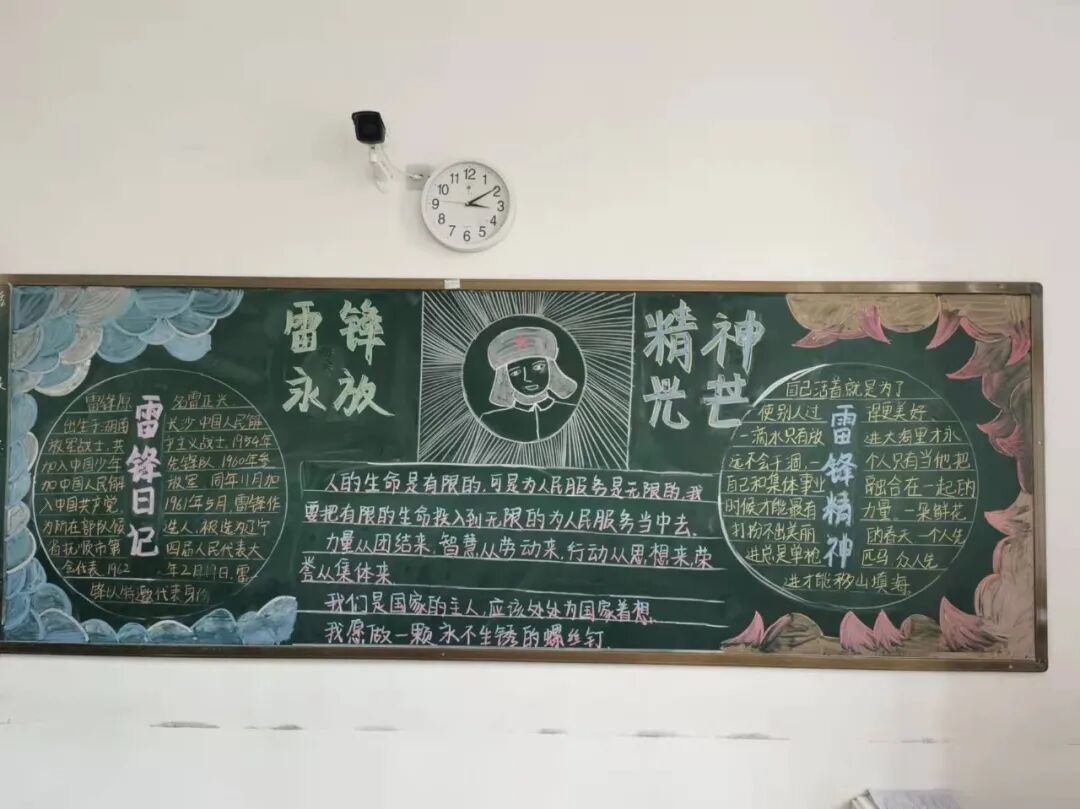 12
1
2
3
4
5
6
7
8
9
10
11
雷锋 精神
永放 光芒
雷锋日记
雷锋原 名雷正兴
出生于湖南 长沙 中国人民解
放军战士，共 产主义战士，1954年
加入中国少年 先锋队，1960年参
加中国人民解 放军 同年11月加
入中国共产党 1961年5月，雷锋作
为所在部队候 选人，被选为辽宁
省抚顺市第 四届人民代表大
会代表 1962 年2月19日，雷
锋以特邀代表身份
人的生命是有限的，可是为人民服务是无限的，我
要把有限的生命投入到无限的为人民服务当中去。
力量从团结来，智慧从劳动来，行动从思想来，荣
誉从集体来
我们是国家的主人，应该处处为国家着想。
我愿做一颗永不生锈的螺丝钉。
雷锋精神
自己活着就是为了
使别人过 得更美好、
一滴水只有放 进大海里才永
远不会干涸，一 个人只有当他把
自己和集体事业 融合在一起的
时候才能最有 力量。一朵鲜花
打扮不出美丽 的春天 一个人先
进总是单枪 匹马，众人先
进才能移山填海。